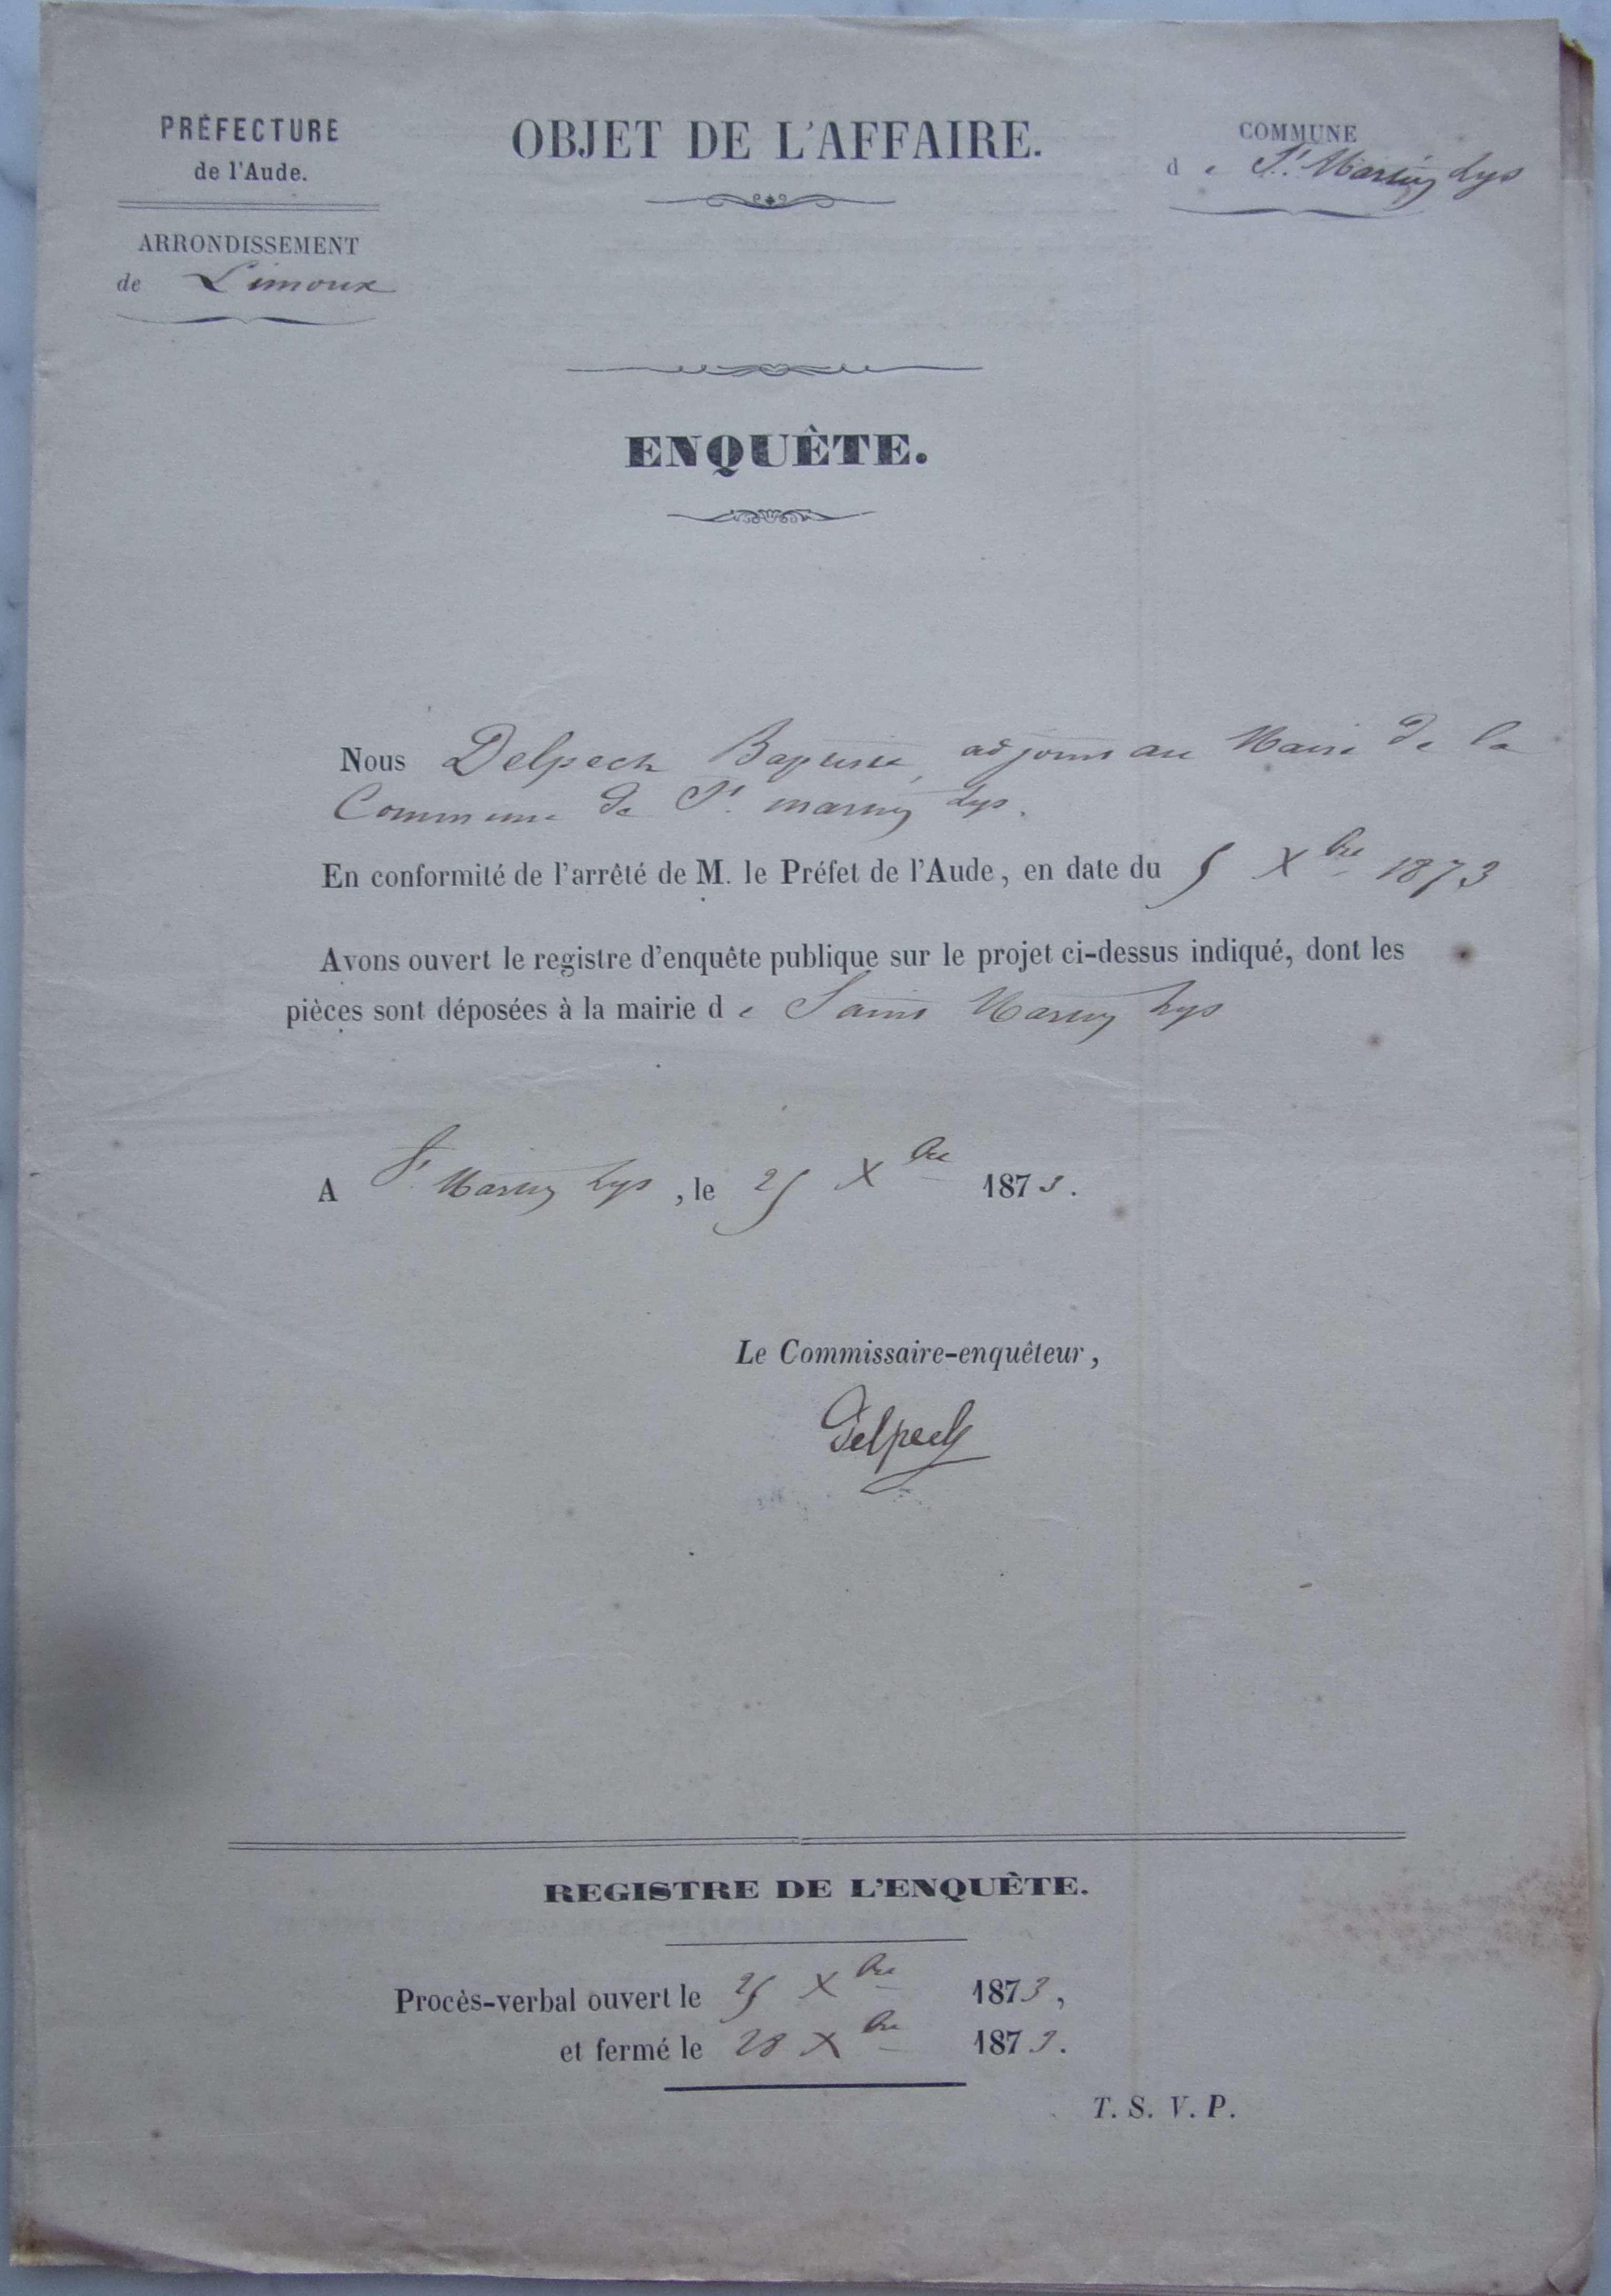 PRÉFECTURE
de l'Aude.
ARRONDISSEMENT
de Limoux
OBJET DE L'AFFAIRE.
COMMUNE
de St. Martin Lys
ENQUÊTE.
Nous Delpech Baptiste, adjoint au Maire de la
Commune de St. martin Lys.
En conformité de l'arrêté de M. le Préfet de l'Aude, en date du 5 Xbre 1873
Avons ouvert le registre d'enquête publique sur le projet ci-dessus indiqué, dont les
pièces sont déposées à la mairie de Saint Martin Lys
A St. Martin Lys, le 25 Xbre 1873.
Le Commissaire-enquêteur,
Delpech
REGISTRE DE L'ENQUÊTE.
Procès-verbal ouvert le 25 Xbre 1873,
et fermé le 28 Xbre 1873.
T. S. V. P.